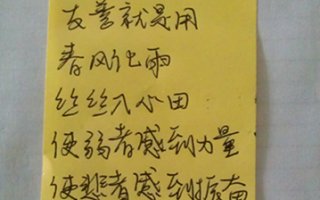 友善就是用
春风化雨
丝丝入心田
使弱者感到力量
使悲者感到振奋